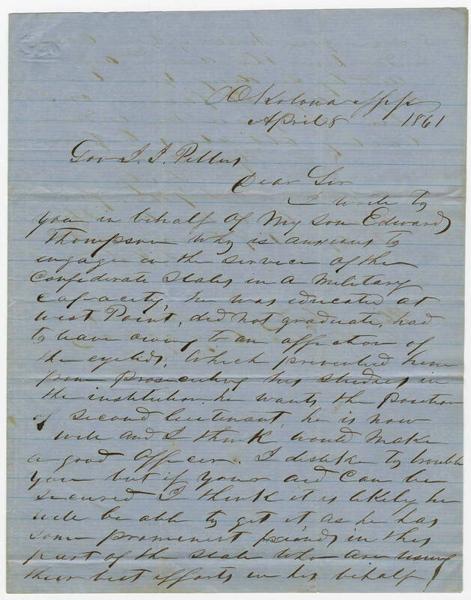 Okolona Miss
April 8 1861
Gov J. J. Pettus
Dear Sir
I write to
you in behalf of my son Edward
Thompson who is anxious to
engage in the service of the
Confederate States in a military
capacity, he was educated at
West Point, did not graduate, had
to leave owing to an affection of
the eyelids, which prevented him
from prosecuting his studies in
the institution. he wants the position
of second lieutenant, he is now
well and I think would make
a good officer. I dislike to trouble
you but if your aid can be
secured I think it is likely he
will be able to get it as he has
some prominent friends in this
part of the state who are using
their best efforts in his behalf